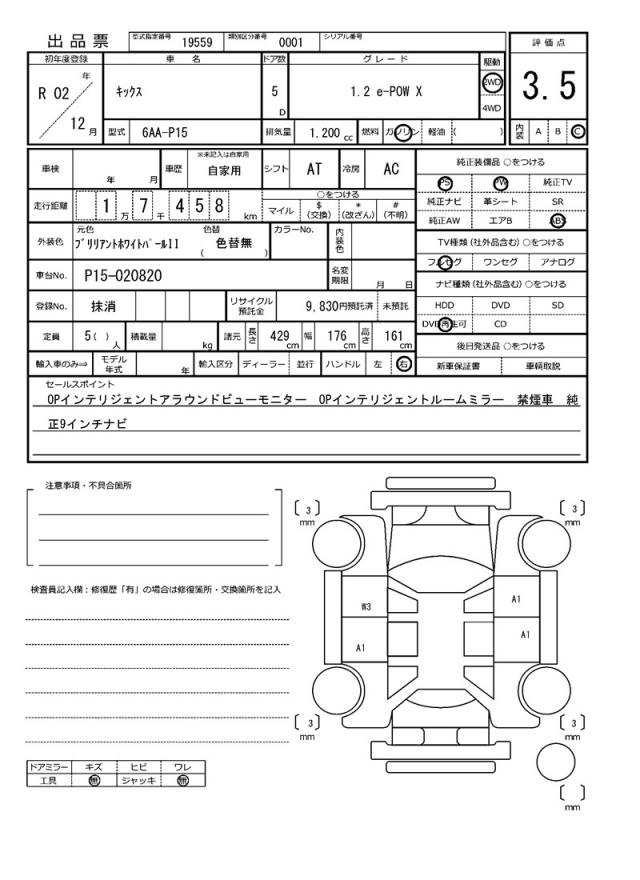 出品票 型式指定番号 19559 類別区分番号 0001 シリアル番号
評価点
3.5
内装 A B C
初年度登録 車名 ドア数 グレード 駆動
R 02 年 12 月 キックス 5 D 1.2 e-POW X 2WD
4WD
型式 6AA-P15 排気量 1.200 cc 燃料 ガソリン 軽油 ( )
車検 年 月 車歴 ※未記入は自家用 自家用 シフト AT 冷房 AC
走行距離 1 万 7 千 4 5 8 km ○をつける
マイル $ (交換) * (改ざん) # (不明)
外装色 元色 ブリリアントホワイトパールII 色替 ( 色替無 ) カラーNo. 内装色
車台No. P15-020820 名変期限 月 日
登録No. 抹消 リサイクル預託金 9,830円預託済 未預託
定員 5( )人 積載量 kg 諸元 長さ 429 cm 幅 176 cm 高さ 161 cm
輸入車のみ⇒ モデル年式 年 輸入区分 ディーラー 並行 ハンドル 左 右
純正装備品 ○をつける
PS PW 純正TV
純正ナビ 革シート SR
純正AW エアB ABS
TV種類(社外品含む)○をつける
フルセグ ワンセグ アナログ
ナビ種類(社外品含む)○をつける
HDD DVD SD
DVD再生可 CD
後日発送品 ○をつける
新車保証書 車輌取説
セールスポイント
OPインテリジェントアラウンドビューモニター OPインテリジェントルームミラー 禁煙車 純
正9インチナビ
注意事項・不具合箇所
検査員記入欄：修復歴「有」の場合は修復箇所・交換箇所を記入
ドアミラー キズ ヒビ ワレ
工具 無 ジャッキ 無
〔 3 〕 mm
〔 3 〕 mm
W3
A1
A1
A1
〔 3 〕 mm
〔 3 〕 mm
〔 〕 mm